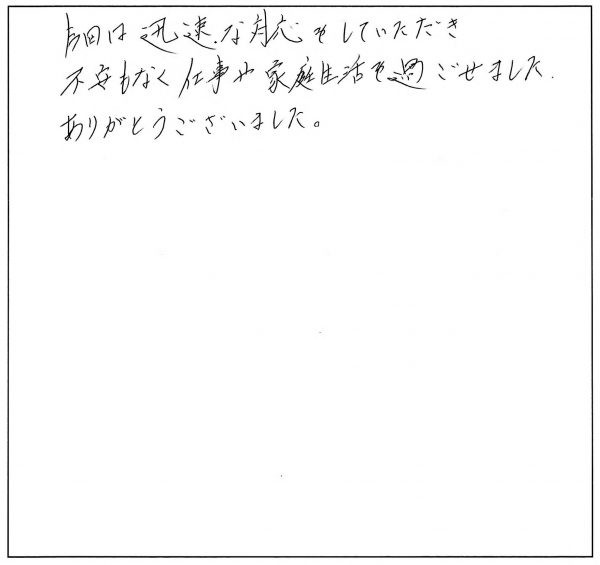 今回は迅速な対応をしていただき
不安もなく仕事や家庭生活を過ごせました.
ありがとうございました。